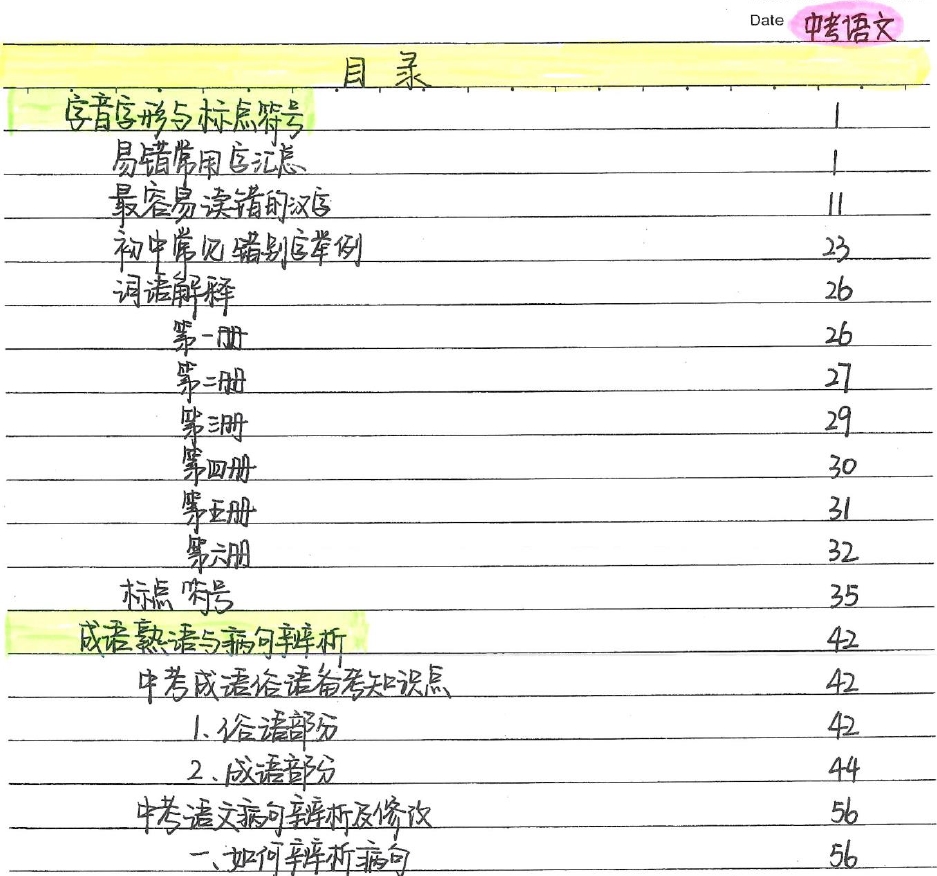 Date 中考语文
目录
字音字形与标点符号 1
易错常用字汇总 1
最容易读错的汉字 11
初中常见错别字举例 23
词语解释 26
第一册 26
第二册 27
第三册 29
第四册 30
第五册 31
第六册 32
标点符号 35
成语熟语与病句辨析 42
中考成语俗语备考知识点 42
1.俗语部分 42
2.成语部分 44
中考语文病句辨析及修改 56
一、如何辨析病句 56